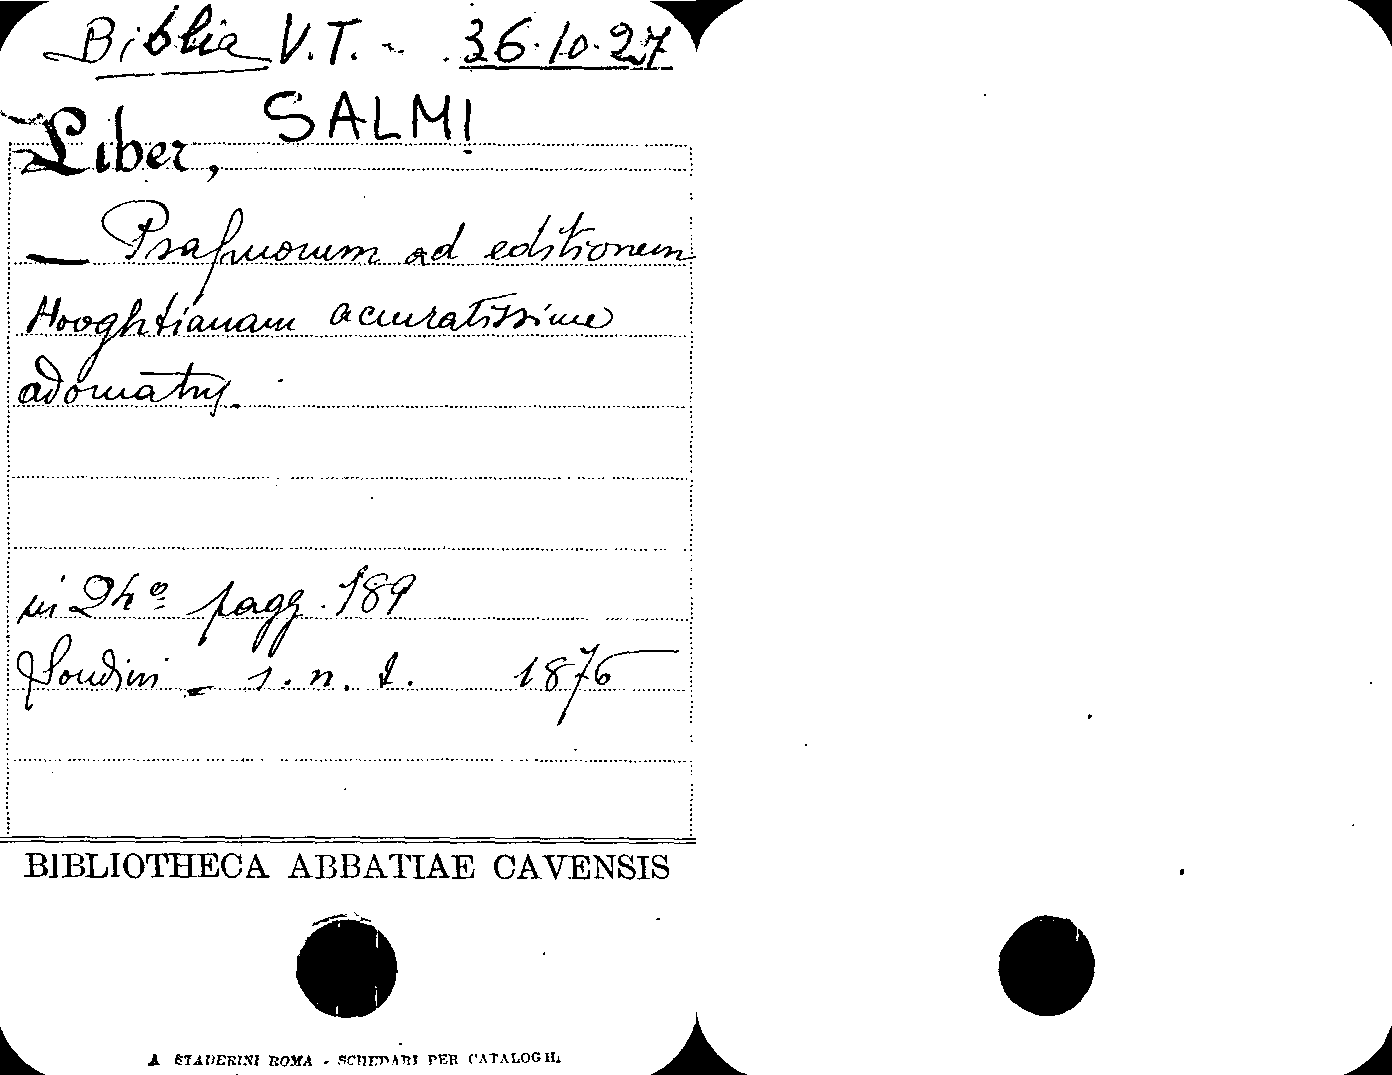 Biblia V.T. - 36.10.27
SALMI
Liber,
— Psalmorum ad editionem
Hooghtianam accuratissime
adornatus.
in 24º pagg. 189
Londini - s. n. t. 1876
BIBLIOTHECA ABBATIAE CAVENSIS
A STADERINI ROMA - SCHEDARI PER CATALOGHI